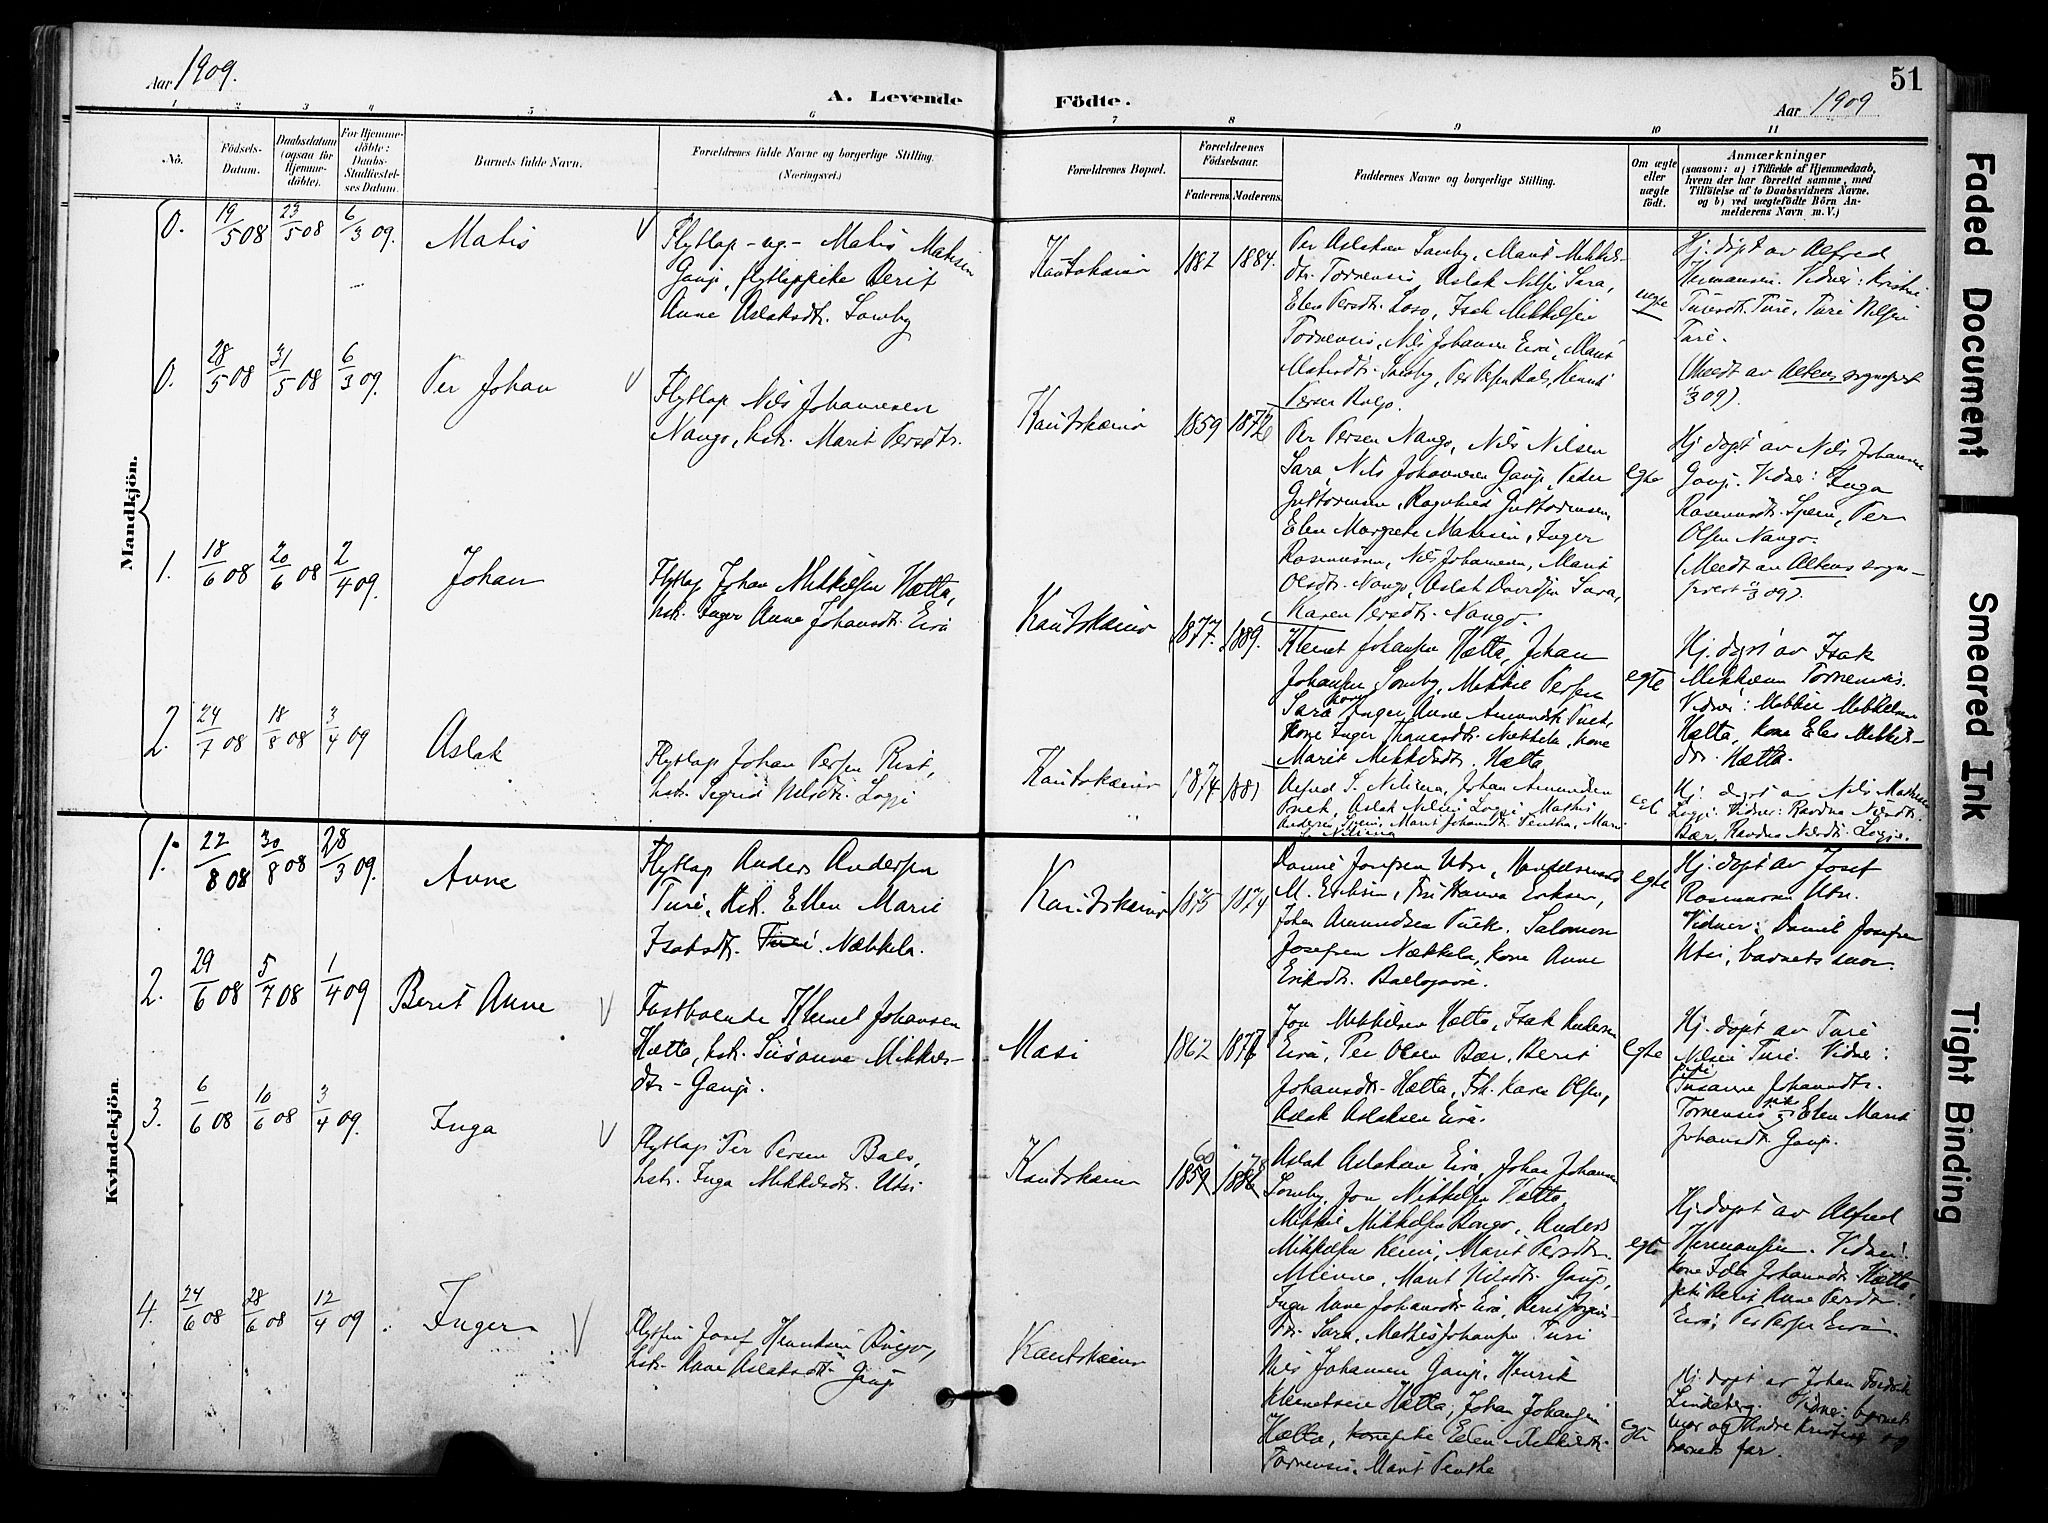 Aar 1909.
A. Levende Födte.
Aar 1909
51
1 2 3 4 5 6 7 8 9 10 11
Nô.
Födsels-
Datum.
Daabsdatum
(ogsaa for
Hjemme-
döbte).
For Hjemme-
döbte:
Daabs-
Stadfæstel-
ses Datum.
Barnets fulde Navn.
Forældrenes fulde Navne og borgerlige Stilling.
(Næringsvei.)
Forældrenes Bopæl.
Forældrenes
Födselsaar.
Faderens. Moderens.
Faddernes Navne og borgerlige Stilling.
Om ægte
eller
uægte
födt.
Anmærkninger
(saasom: a) i Tilfælde af Hjemmedaab,
hvem der har forrettet samme, med
Tilföielse af to Daabsvidners Navne,
og b) ved uægtefödte Börn An-
melderens Navn m. V.)
Mandkjön.
0. 19/5 08 23/5 08 6/3 09. Matis
Flytlap - ug. - Matis Matisen
Gaup, flytlappike Berit
Anne Aslaksdtr. Somby
Kautokeino 1882 1884.
Per Aslaksen Somby, Marit Mikkels-
dtr. Tornensis, Aslak Nilsen Sara,
Elen Persdtr. , Isak Mikkelsen
Tornensis, Nils Johansen Eira, Marit
Matisdtr. Somby, Per Persen Bals, Henrik
Persen
uegte
Hj. døpt av Alfred
Hermansen. Vidner: Kristine
Turesdtr. Turi, Turi Nilsen
Turi.
(Meedt av Altens sogneprest
/3 09).
0. 28/5 08 31/5 08 6/3 09. Per Johan
Flytlap Nils Johannesen
Nango, hst. Marit Persdtr.
Kautokeino 1859
Per Persen Nango, Nils Nilsen
Sara, Nils Johannesen Gaup, Peder
Guttormsen, Ragnhild Guttormsen,
Elen Margrete Matisen, Inger
Rasmussen, Nils Johannesen, Marit
Olsdtr. Nango, Aslak Davidsen Sara,
Karen Persdtr. Nango.
egte
Hj. døpt av Nils Johannesen
Gaup. Vidner: Inga
Rasmusdtr. Spein, Per
Olsen Nango.
(Meedt av Altens sogne-
prest /3 09).
1. 18/6 08 20/6 08 2/4 09. Johan
Flytlap Johan Mikkelsen Hætta,
hst. Inger Anne Johansdtr. Eira
Kautokeino 1877. 1889.
Klemet Johansen Hætta, Johan
Johansen Somby, Mikkel Persen
Sara, kone Inger Anne Amundsdtr.
Kone Inger Nekkela, kone
Marit Mikkelsdtr. Hætta
egte
Hj. døpt av Isak
Mikkelsen Tornensis.
Vidner: Mikkel Mikkelsen
Hætta, kone Elen Mikkels-
dtr. Hætta.
2. 24/7 08 18/8 08 3/4 09 Aslak
Flytlap Johan Persen Rist,
hst. Sigrid Nilsdtr. Logje
Kautokeino 1874 1881
Alfred S. Nilsen, Johan Amundsen
, Aslak Nilsen Logje, Mathis
Andersen Spein, Marit Johansdtr. Pentha,
egt
Hj. døpt av Nils Mathisen
Logje. Vidner: Ravdna Nilsdtr.
Bær, Ravdna Nilsdtr. Logje.
Kvindekjön.
1. 22/8 08 30/8 08 28/3 09. Anne
Flytlap Anders Andersen
Turi, Hst. Ellen Marie
Isaksdt. Turi. Nækkela.
Kautokeino 1875 1874
Daniel Josefsen Utsi,
M. Eriksen, Hanna Eriksen,
Johan Amundsen . Salomon
Josefsen Nækkela, kone Anne
Eriksdtr.
egte
Hj. døpt av Josef
Rasmussen Utsi.
Vidner: Daniel Josefsen
Utsi, barnets mor.
2. 29/6 08 5/7 08 1/4 09 Berit Anne
Fastboende Klemet Johansen
Hætta, hst. Susanne Mikkels-
dtr. - Gaup.
Masi 1862
Jon Mikkelsen Hætta, Isak
Eira, Per Olsen Bær, Berit
Johansdtr. Hætta, Frk. Karen Olsen,
Aslak Aslaksen Eira.
egte
Hj. døpt av Turi
Nilsen Turi. Vidner:
pike Susanne Johansdtr.
Tornensis, pike Elen Marit
Johansdtr. Gaup.
3. 6/6 08 10/6 08 3/4 09. Inga
Flytlap Per Persen Bals,
hst. Inga Mikkelsdtr. Utsi
Kautokeino 1859 60 78
Aslak Aslaksen Eira, Johan Johansen
Somby, Jon Mikkelsen Hætta,
Mikkel Mikkelsen Bongo, Anders
Mikkelsen Keino, Marit Persdtr.
, Marit Nilsdtr. Gaup,
Inger Anne Johansdtr. Eira, Berit
dtr. Sara, Mathis Johansen Turi
egte
Hj. døpt av Alfred
Hermansen. Vidner:
kone Ida Johansdtr. Hætta,
pike Berit Anne Persdtr.
Eira, Per Persen Eira.
4. 24/6 08 28/6 08 12/4 09 Inger
Josef Henriksen ,
hst. Anne Aslaksdtr. Gaup
Kautokeino
Nils Johansen Gaup, Henrik
Klemetsen Hætta, Johan Johansen
Hætta, kone pike Elen Mikkelsdtr.
Tornensis. Marit Pentha
egte
Hj. døpt av Johan Fredrik
Lindeberg. Vidner: barnets
mor og
barnets far.
Faded Document
Smeared Ink
Tight Binding